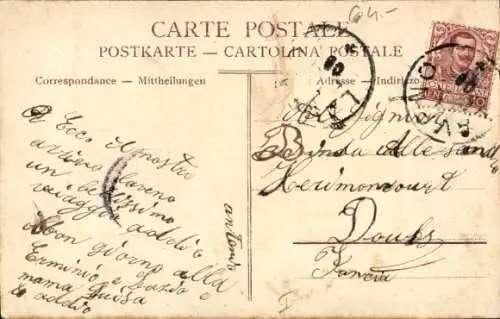 64.-
CARTE POSTALE
POSTKARTE - CARTOLINA POSTALE
Correspondance - Mittheilungen
Adresse - Indirizzo
Ecco il nostro
arrivo
un bellissimo
viaggio addio
bon giorno alla
Erminio e
mama Luisa
e addio
antonio
Al Signior
Herimoncourt
Doubs
Francia
I